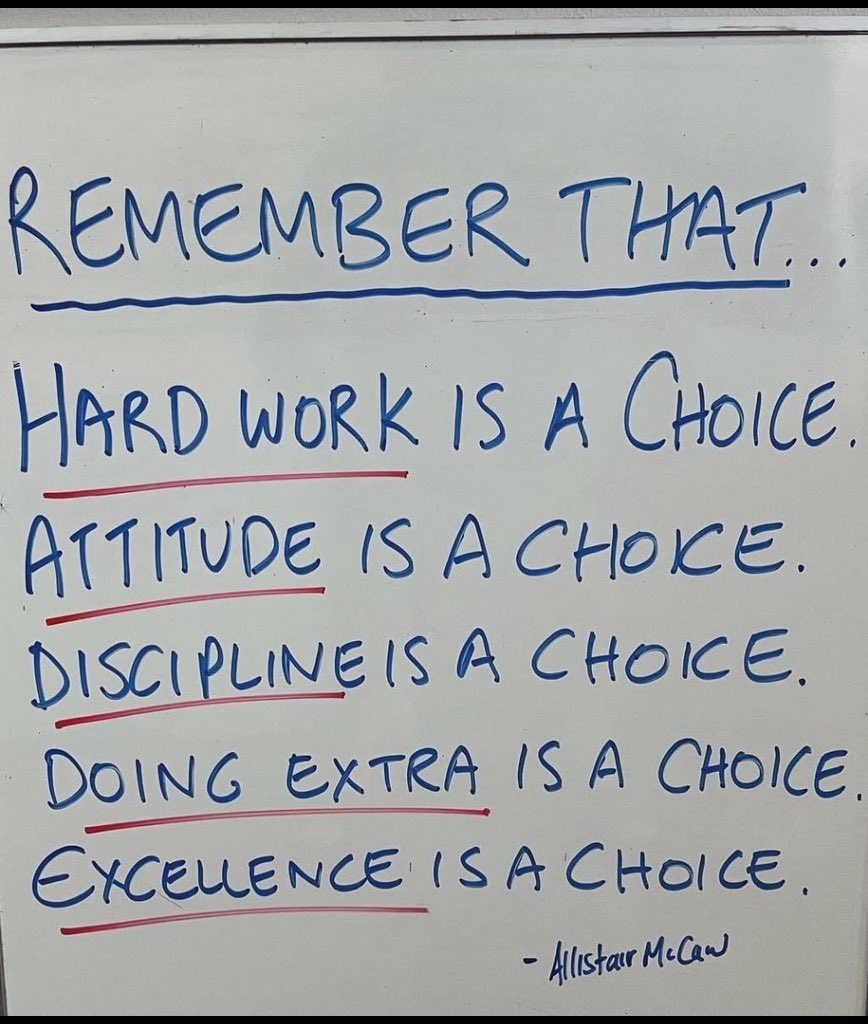 REMEMBER THAT...
HARD WORK IS A CHOICE.
ATTITUDE IS A CHOICE.
DISCIPLINE IS A CHOICE.
DOING EXTRA IS A CHOICE.
EXCELLENCE IS A CHOICE.
- Allistair McCaw